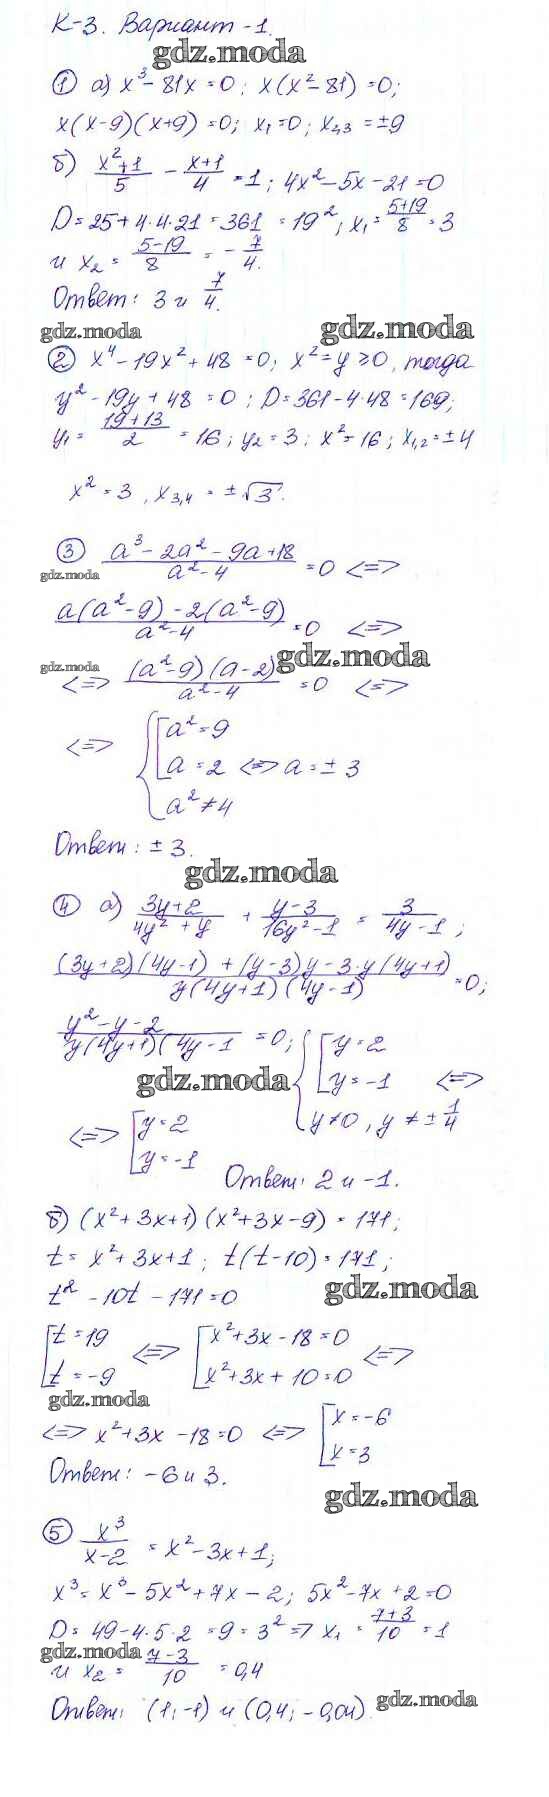 К-3. Вариант-1.
gdz.moda
① а) x³ - 81x = 0; x(x² - 81) = 0;
x(x-9)(x+9) = 0; x₁ = 0; x₂,₃ = ±9
б) (x²+1)/5 - (x+1)/4 = 1; 4x² - 5x - 21 = 0
D = 25 + 4·4·21 = 361 = 19²; x₁ = (5+19)/8 = 3
и x₂ = (5-19)/8 = -7/4.
Ответ: 3 и 7/4.
gdz.moda gdz.moda
② x⁴ - 19x² + 48 = 0; x² = y ⩾ 0, тогда
y² - 19y + 48 = 0; D = 361 - 4·48 = 169;
y₁ = (19+13)/2 = 16; y₂ = 3; x² = 16; x₁,₂ = ±4
x² = 3, x₃,₄ = ±√3.
③ (a³ - 2a² - 9a + 18)/(a² - 4) = 0 <=>
gdz.moda
(a(a²-9) - 2(a²-9))/(a²-4) = 0 <=>
gdz.moda gdz.moda
<=> ((a²-9)(a-2))/(a²-4) = 0 <=>
<=> { [ a² = 9
a = 2 <=> a = ±3
a² ≠ 4
Ответ: ±3.
gdz.moda
④ а) (3y+2)/(4y²+y) + (y-3)/(16y²-1) = 3/(4y-1);
((3y+2)(4y-1) + (y-3)y - 3·y(4y+1))/(y(4y+1)(4y-1)) = 0;
(y²-y-2)/(y(4y+1)(4y-1 = 0; { [ y = 2
gdz.moda
y = -1 <=>
y ≠ 0, y ≠ ±1/4
<=> [ y = 2
y = -1
Ответ: 2 и -1.
б) (x²+3x+1)(x²+3x-9) = 171;
t = x²+3x+1; t(t-10) = 171;
gdz.moda
t² - 10t - 171 = 0
[ t = 19 <=> [ x²+3x-18 = 0 <=>
t = -9 x²+3x+10 = 0
gdz.moda
<=> x²+3x-18 = 0 <=> [ x = -6
x = 3
Ответ: -6 и 3.
gdz.moda
⑤ x³/(x-2) = x² - 3x + 1;
x³ = x³ - 5x² + 7x - 2; 5x² - 7x + 2 = 0
D = 49 - 4·5·2 = 9 = 3² => x₁ = (7+3)/10 = 1
gdz.moda
и x₂ = (7-3)/10 = 0,4
gdz.moda
Ответ: (1; -1) и (0,4; -0,04).